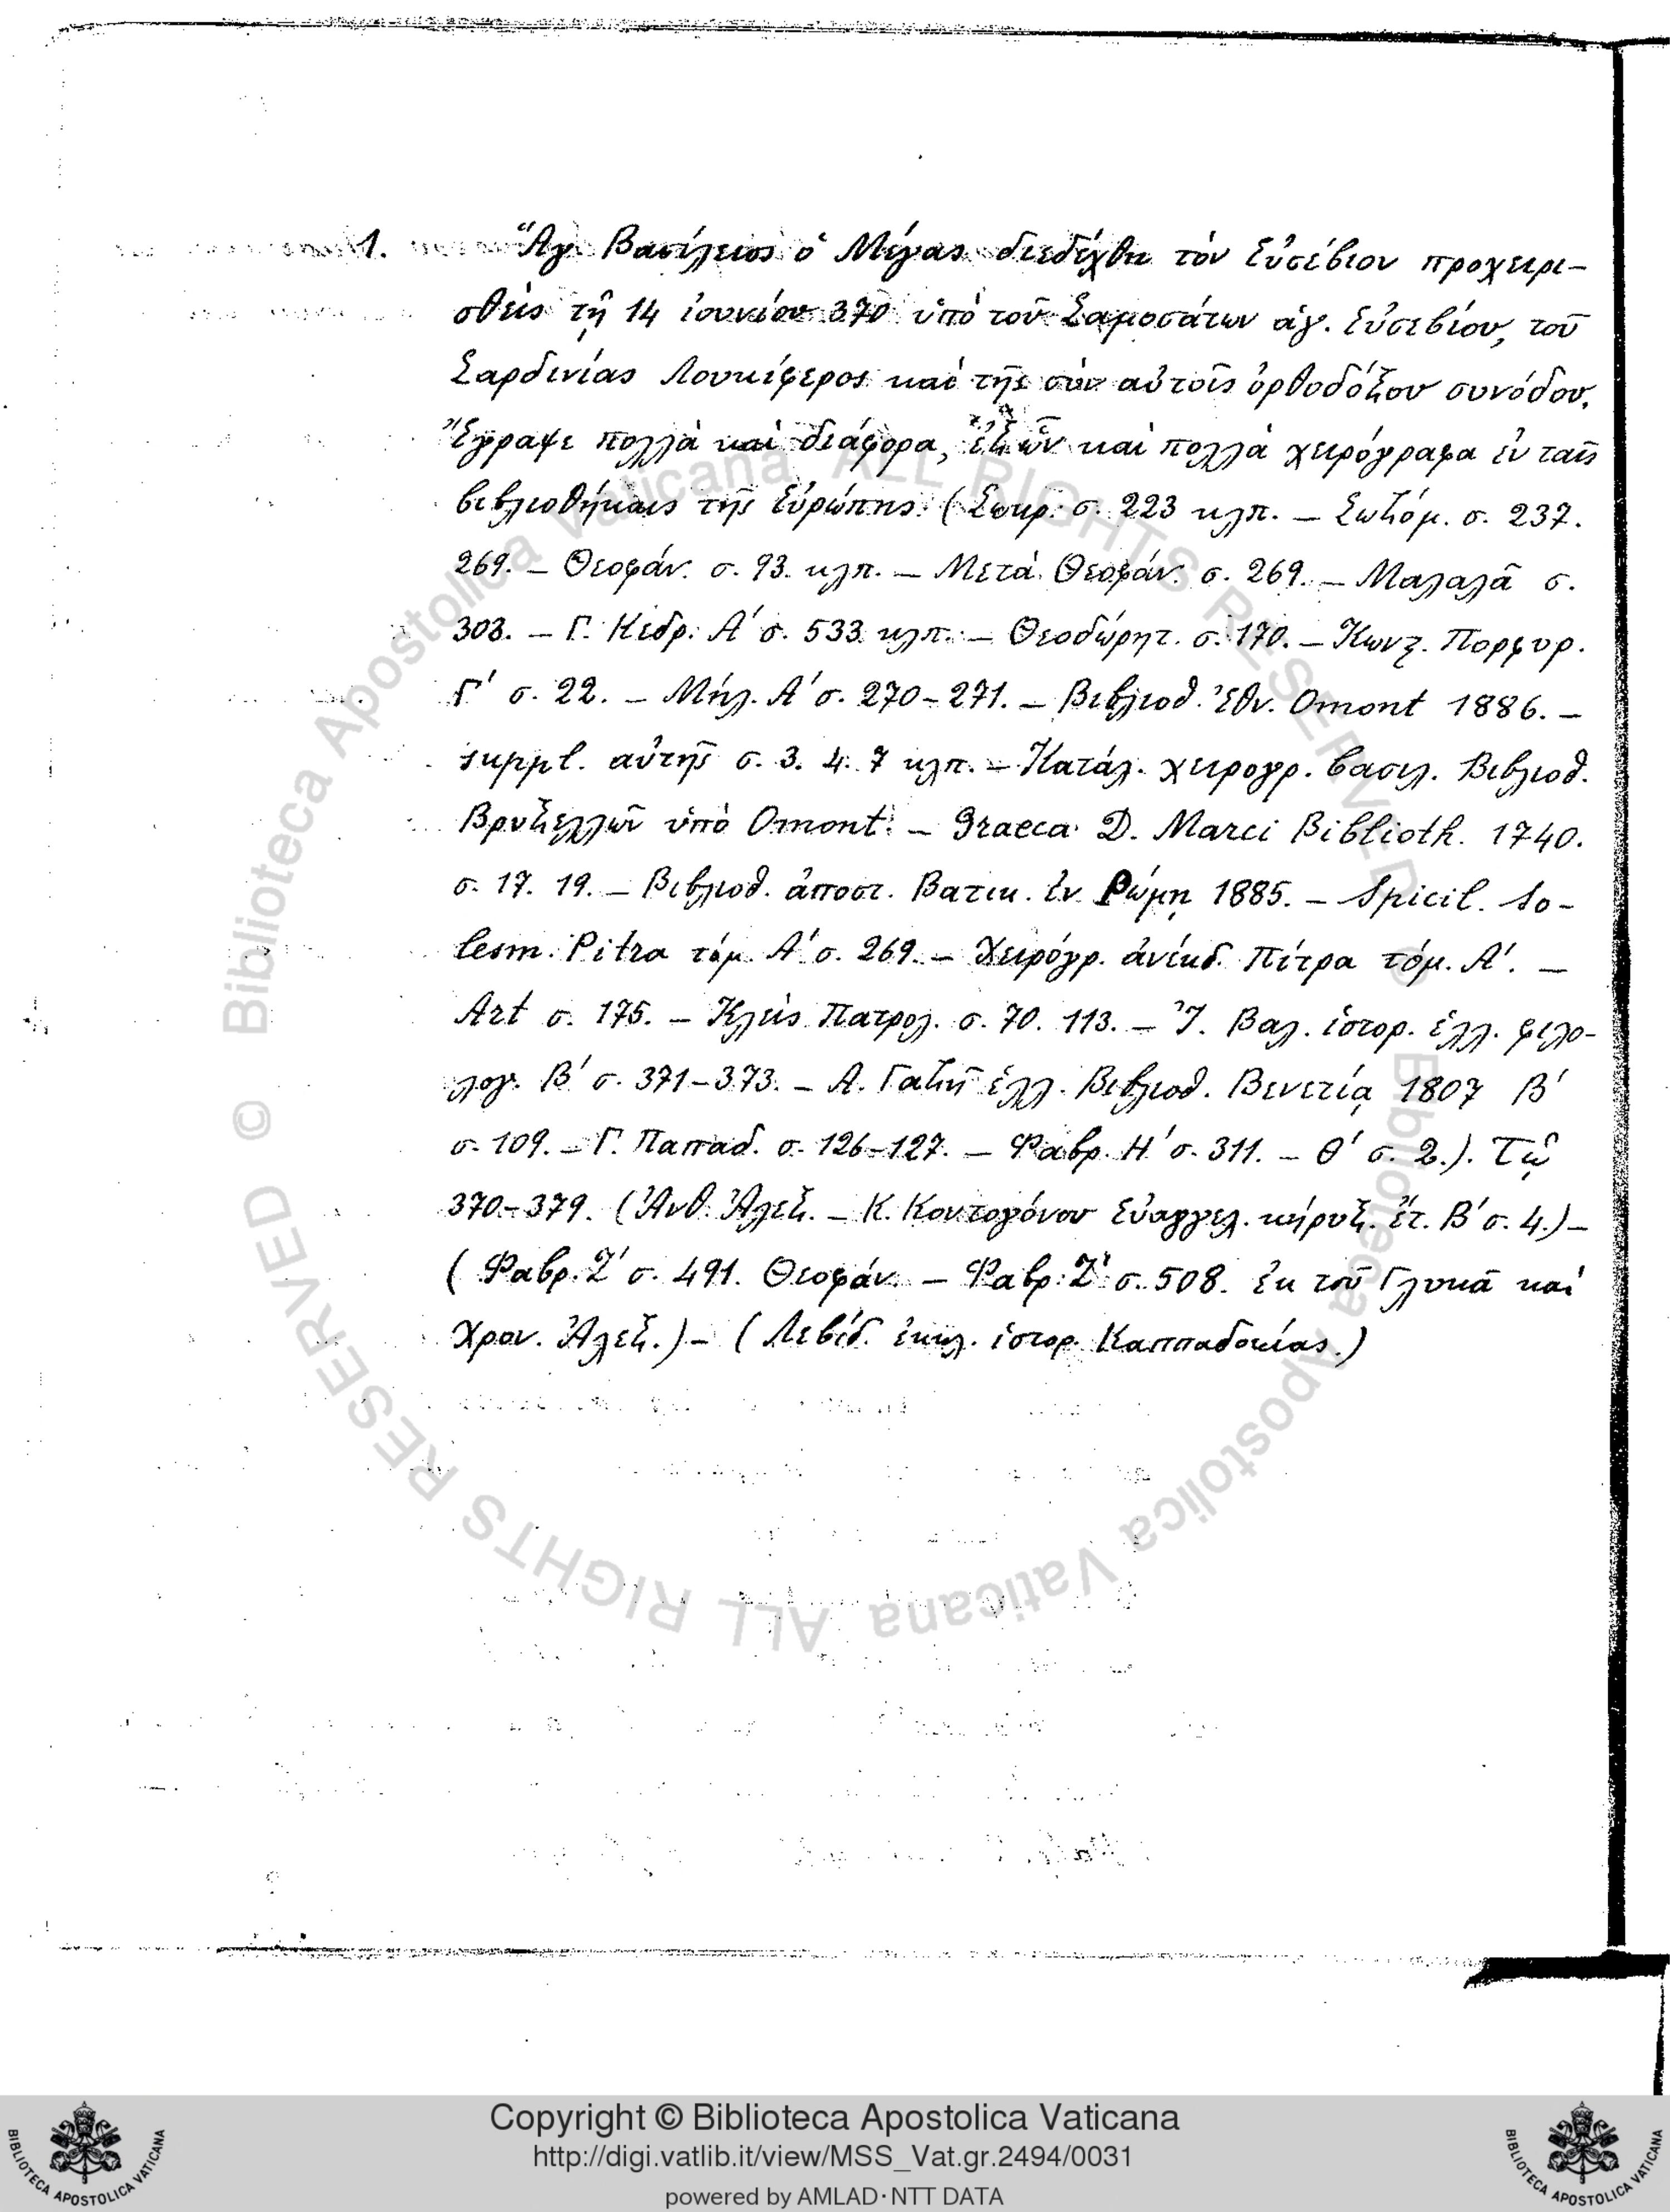 1. Ἅγ. Βασίλειος ὁ Μέγας διεδέχθη τὸν Εὐσέβιον προχειρι-
σθεὶς τῇ 14 ἰουνίου 370 ὑπὸ τοῦ Σαμοσάτων ἁγ. Εὐσεβίου, τοῦ
Σαρδινίας Λουκίφερος καὶ τῆς σὺν αὐτοῖς ὀρθοδόξου συνόδου.
Ἔγραψε πολλὰ καὶ διάφορα, ἐξ ὧν καὶ πολλὰ χειρόγραφα ἐν ταῖς
βιβλιοθήκαις τῆς Εὐρώπης. (Σωκρ. σ. 223 κλπ. – Σωζόμ. σ. 237.
269. – Θεοφάν. σ. 93. κλπ. – Μετὰ Θεοφάν. σ. 269. – Μαλαλᾶ σ.
303. – Γ. Κεδρ. Α' σ. 533 κλπ. – Θεοδώρητ. σ. 170. – Κωνς. Πορφυρ.
Γ' σ. 22. – Μήλ. Α' σ. 270–271. – Βιβλιοθ. Ἐθν. Omont 1886. –
suppl. αὐτῆς σ. 3. 4. 7 κλπ. – Κατάλ. χειρογρ. βασιλ. Βιβλιοθ.
Βρυξελλῶν ὑπὸ Omont. – Graeca D. Marci Biblioth. 1740.
σ. 17. 19. – Βιβλιοθ. ἀποστ. Βατικ. ἐν Ρώμῃ 1885. – Spicil. So-
lesm. Pitra τόμ. Α' σ. 269. – Χειρόγρ. ἀνέκδ. Πίτρα τόμ. Α'. –
Art σ. 175. – Κλεὶς Πατρολ. σ. 70. 113. – Ἰ. Βαλ. ἱστορ. ἑλλ. φιλο-
λογ. Β' σ. 371–373. – Α. Γαζῆ ἑλλ. Βιβλιοθ. Βενετίᾳ 1807 Β'
σ. 109. – Γ. Παπαδ. σ. 126–127. – Φαβρ. Η' σ. 311. – Θ' σ. 2.). Τῷ
370–379. (Ἀνθ. Ἀλεξ. – Κ. Κοντογόνου Εὐαγγελ. κήρυξ. ἔτ. Β' σ. 4.) –
(Φαβρ. Ζ' σ. 491. Θεοφάν. – Φαβρ. Ζ' σ. 508. ἐκ τοῦ Γλυκᾶ καὶ
Χρον. Ἀλεξ.) – (Λεβίδ. ἐκκλ. ἱστορ. Καππαδοκίας.)
© Biblioteca Apostolica Vaticana ALL RIGHTS RESERVED
© Biblioteca Apostolica Vaticana ALL RIGHTS RESERVED
BIBLIOTECA APOSTOLICA VATICANA
Copyright © Biblioteca Apostolica Vaticana
http://digi.vatlib.it/view/MSS_Vat.gr.2494/0031
powered by AMLAD·NTT DATA
BIBLIOTECA APOSTOLICA VATICANA